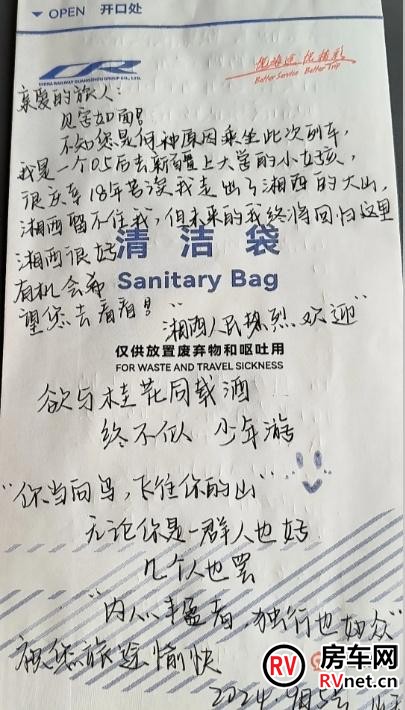 OPEN 开口处
CR
CHINA RAILWAY GUANGZHOU GROUP CO., LTD.
优旅途 优精彩
Better Service Better Trip
亲爱的旅人：
见字如面！
不知您是何种原因乘坐此次列车，
我是一个05后去新疆上大学的小女孩，
很庆幸18年苦读我走出了湘西的大山，
湘西留不住我，但未来的我终将回归这里
湘西很好
清洁袋
有机会希
Sanitary Bag
望您去看看！
“湘西人民热烈欢迎”
仅供放置废弃物和呕吐用
FOR WASTE AND TRAVEL SICKNESS
欲与桂花同载酒
终不似 少年游
“你当向鸟，飞往你的山”
无论你是一群人也好
几个人也罢
“内心丰盈者，独行也如众”
祝您旅途愉快
2024.9月5号
RV 房车网
RVnet.cn